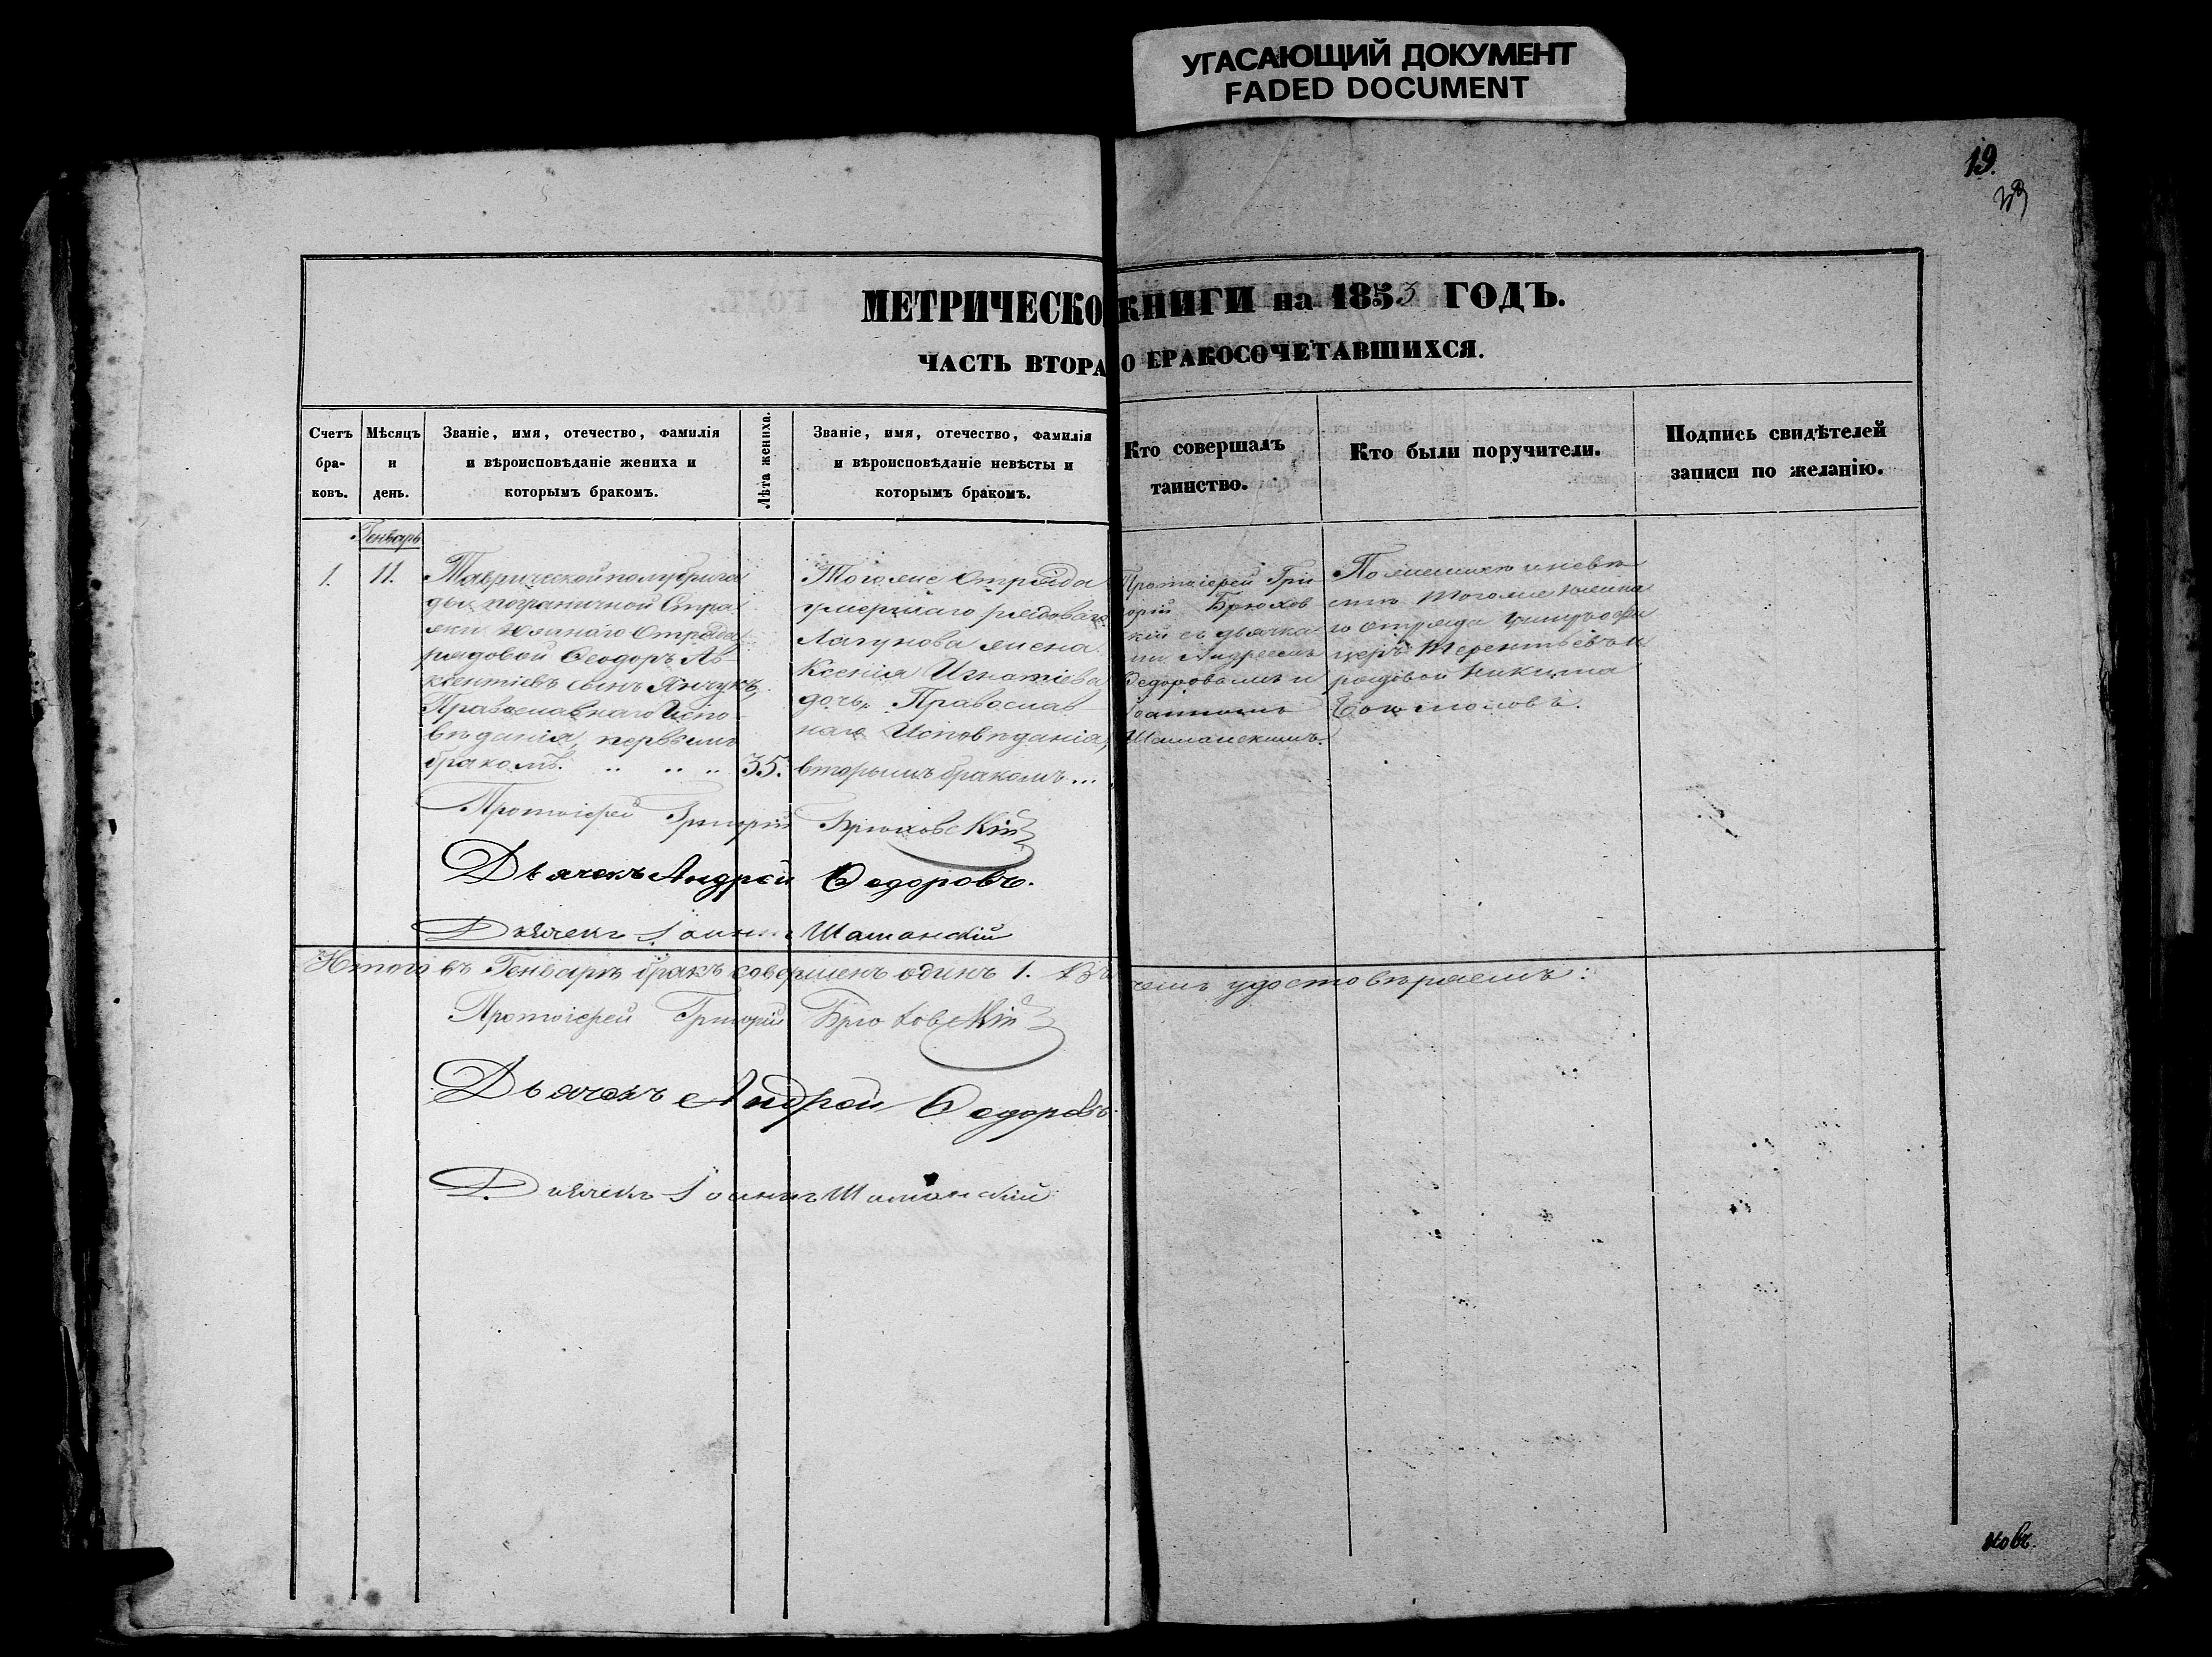 УГАСАЮЩИЙ ДОКУМЕНТ
FADED DOCUMENT
19.
МЕТРИЧЕСКО КНИГИ на 1853 ГОДЪ.
ЧАСТЬ ВТОРА О БРАКОСОЧЕТАВШИХСЯ.
Счетъ бра-ковъ.
Мѣсяцъ и день.
Званіе, имя, отечество, фамилія
и вѣроисповѣданіе жениха и
которымъ бракомъ.
Лѣта жениха.
Званіе, имя, отечество, фамилія
и вѣроисповѣданіе невѣсты и
которымъ бракомъ.
Кто совершалъ
таинство.
Кто были поручители.
Подпись свидѣтелей
записи по желанію.
Генварь
1. 11.
Таврической полубрига
ды, пограничной Стра
жи Южнаго Отряда
рядовой Ѳеодоръ Ав-
ксентіевъ сынъ Янчукъ,
Православнаго Испо-
вѣданія, первымъ
бракомъ.
35.
Того же Отряда
умершаго рядоваго
Лагунова жена
Ксенія Игнатіева
дочь, Православ
наго Исповѣданія,
вторымъ бракомъ...
Протоіерей Гри
горій Брюхов
скій съ дьячка
ми Андреемъ
Ѳедоровымъ и
Іоанномъ
Шаманскимъ.
По женихѣ и невѣ
стѣ того же Южна
го отряда Унтеръ офи
церъ Терентьевъ и
рядовой Никита
Богомоловъ.
Протоіерей Григорій Брюховскій
Дьячекъ Андрей Ѳедоровъ.
Дьячекъ Іоаннъ Шаманскій
Итого въ Генварѣ бракъ совершенъ одинъ 1. Въ чемъ удостовѣряемъ:
Протоіерей Григорій Брюховскій
Дьячекъ Андрей Ѳедоровъ
Дьячекъ Іоаннъ Шаманскій
ковъ.